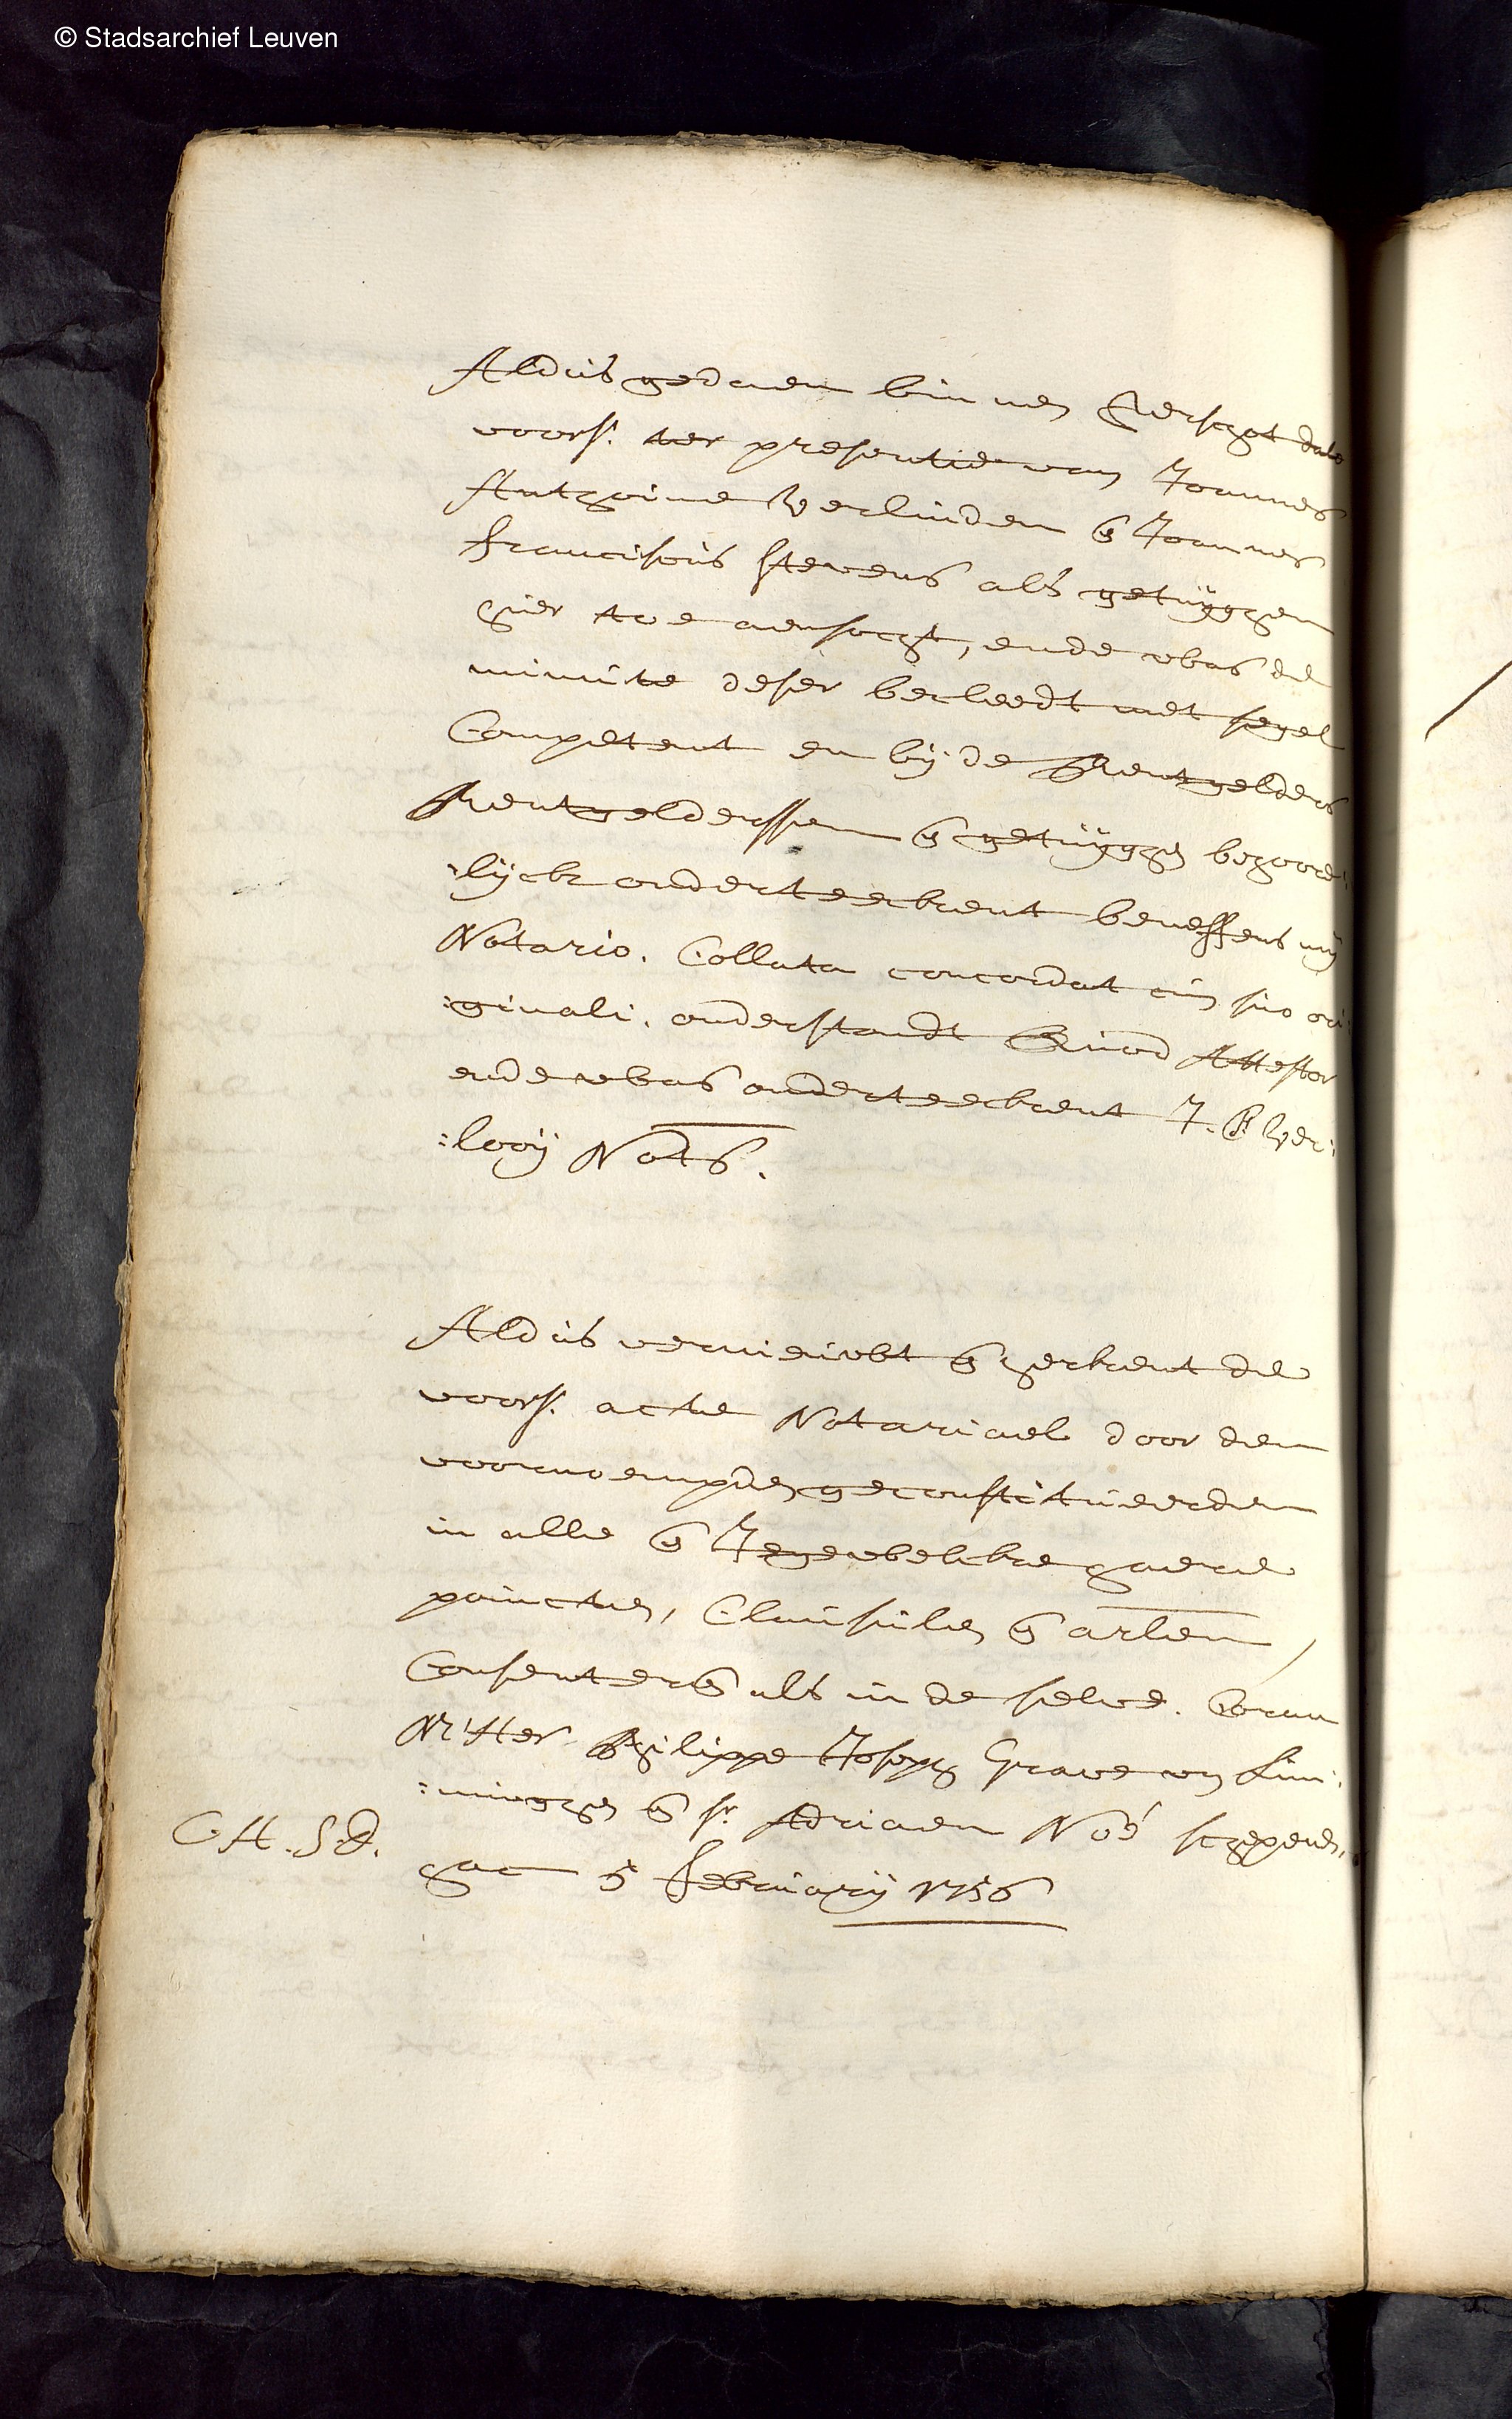 © Stadsarchief Leuven
Aldus gedaen binnen Aerschot dato
voors. ter presentie van Joannes
Anthoine Verlinden en Joannes
Franciscus Stevens als getuyghen
hier toe aensocht, ende was de
minute deser becleedt met segel
Competent en by de Rentgelders
Rentgelderssen en getuyghen behoor:
:lyck onderteeckent beneffens my
Notario. Collata concordat cum suo ori:
:ginali. onderstandt Quod Attestor
ende was onderteeckent J. B. Ver:
:looy Nots.
Aldus vernieuwt en herkent de
voors. acte Notariael door den
voornoempden geconstitueerden
in alle en Jegewelcke haere
poincten, Clausulen en arlen,
Consenteren als in de selve. Coram
Mher Philippe Joseph Grave van Lim:
:minghe en sr. Adriaen Noé schepenen,
hac 5 february 1756
C.H.S.D.